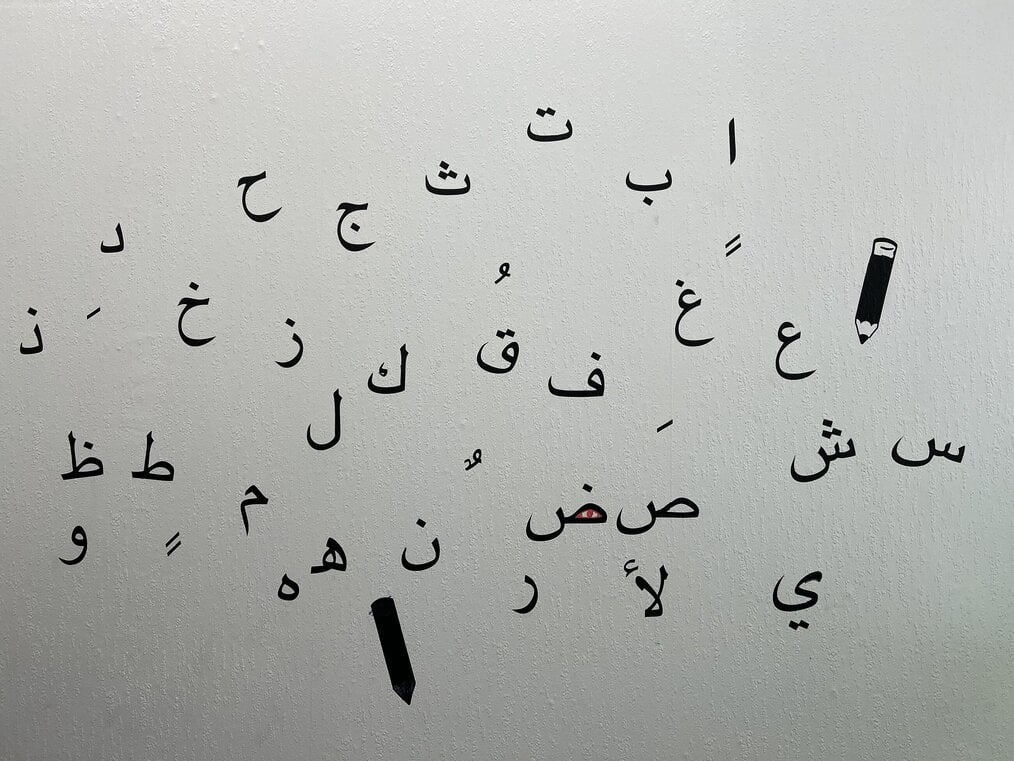 ا ب ت ث ج ح د
ً ع غ ُ ق ف ك ز خ َ ذ
س ش َ ل ط ظ
ص ض ٌ م
ي لأ ر ن ه ه ٍ و